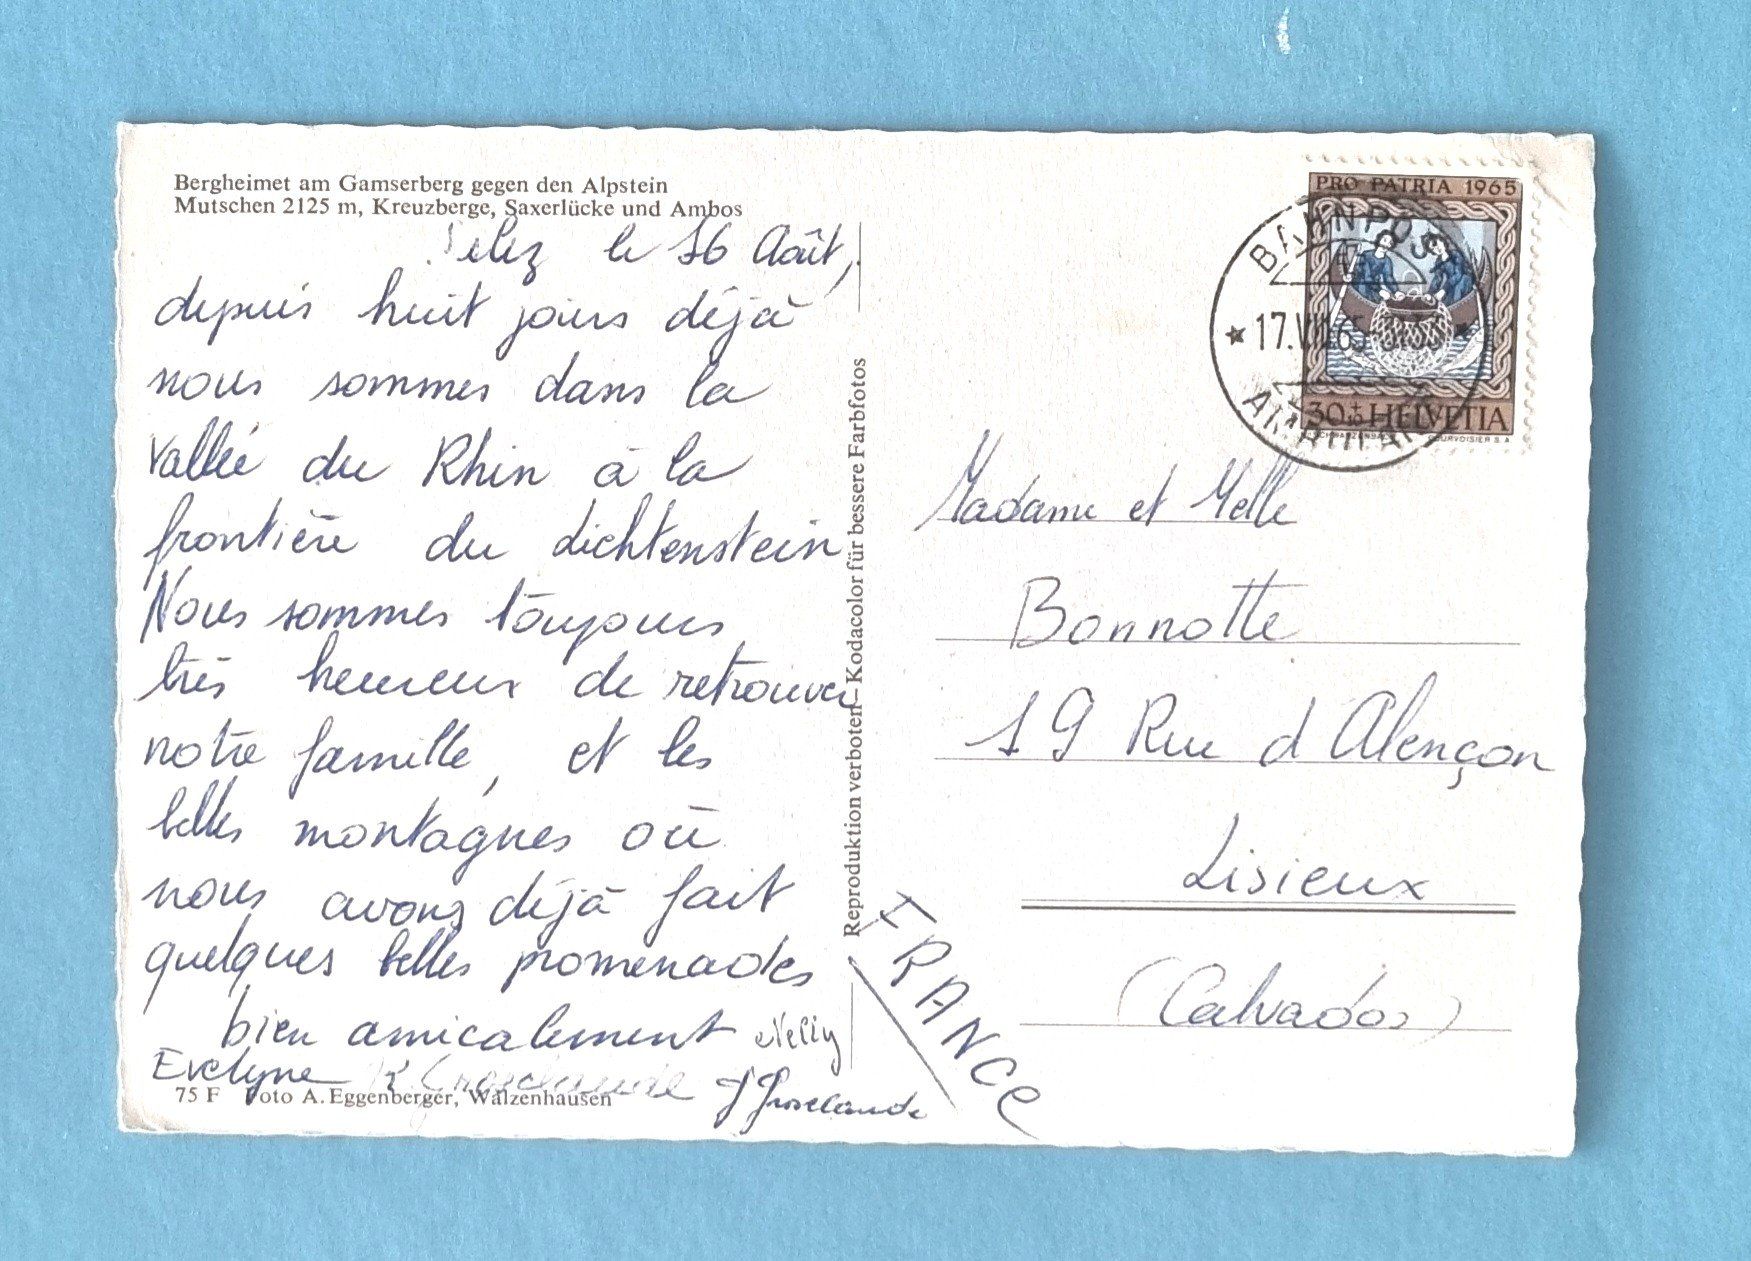 Bergheimet am Gamserberg gegen den Alpstein
Mutschen 2125 m, Kreuzberge, Saxerlücke und Ambos
le 16 Août,
depuis huit jours déjà
nous sommes dans la
vallée du Rhin à la
frontière du Lichtenstein
Nous sommes toujours
très heureux de retrouver
notre famille, et les
belles montagnes où
nous avons déjà fait
quelques belles promenades
bien amicalement Nelly
Evelyne
75 F Foto A. Eggenberger, Walzenhausen
Reproduktion verboten – Kodacolor für bessere Farbfotos
PRO PATRIA 1965
BAHNPOST
17.VIII.65
AMBULANT
30+10 HELVETIA
COURVOISIER S.A.
Madame et Melle
Bonnotte
19 Rue d'Alençon
Lisieux
(Calvados)
FRANCE